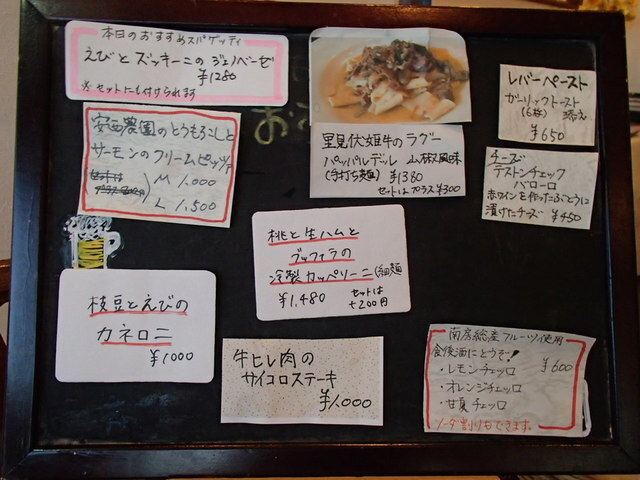 本日のおすすめスパゲッティ
えびとズッキーニのジェノベーゼ
¥1280
※セットにも付けられます
安西農園のとうもろこしと
サーモンのクリームピッツァ
M 1,000
L 1,500
里見伏姫牛のラグー
パッパルデッレ 山林風味
(手打ち麺) ¥1380
セットはプラス¥300
レバーペースト
ガーリックトースト
(6枚) 添え
¥650
チーズ
テストンチェック
バローロ
赤ワインを作ったぶどうに
漬けたチーズ ¥450
桃と生ハムと
ブッファラの
冷製カッペリーニ(細麺
¥1,480 セットは
+200円
枝豆とえびの
カネロニ
¥1000
牛ヒレ肉の
サイコロステーキ
¥1,000
南房総産フルーツ使用
食後酒にどうぞ!
・レモンチェッロ ¥600
・オレンジチェッロ
・甘夏チェッロ
ソーダ割りもできます。